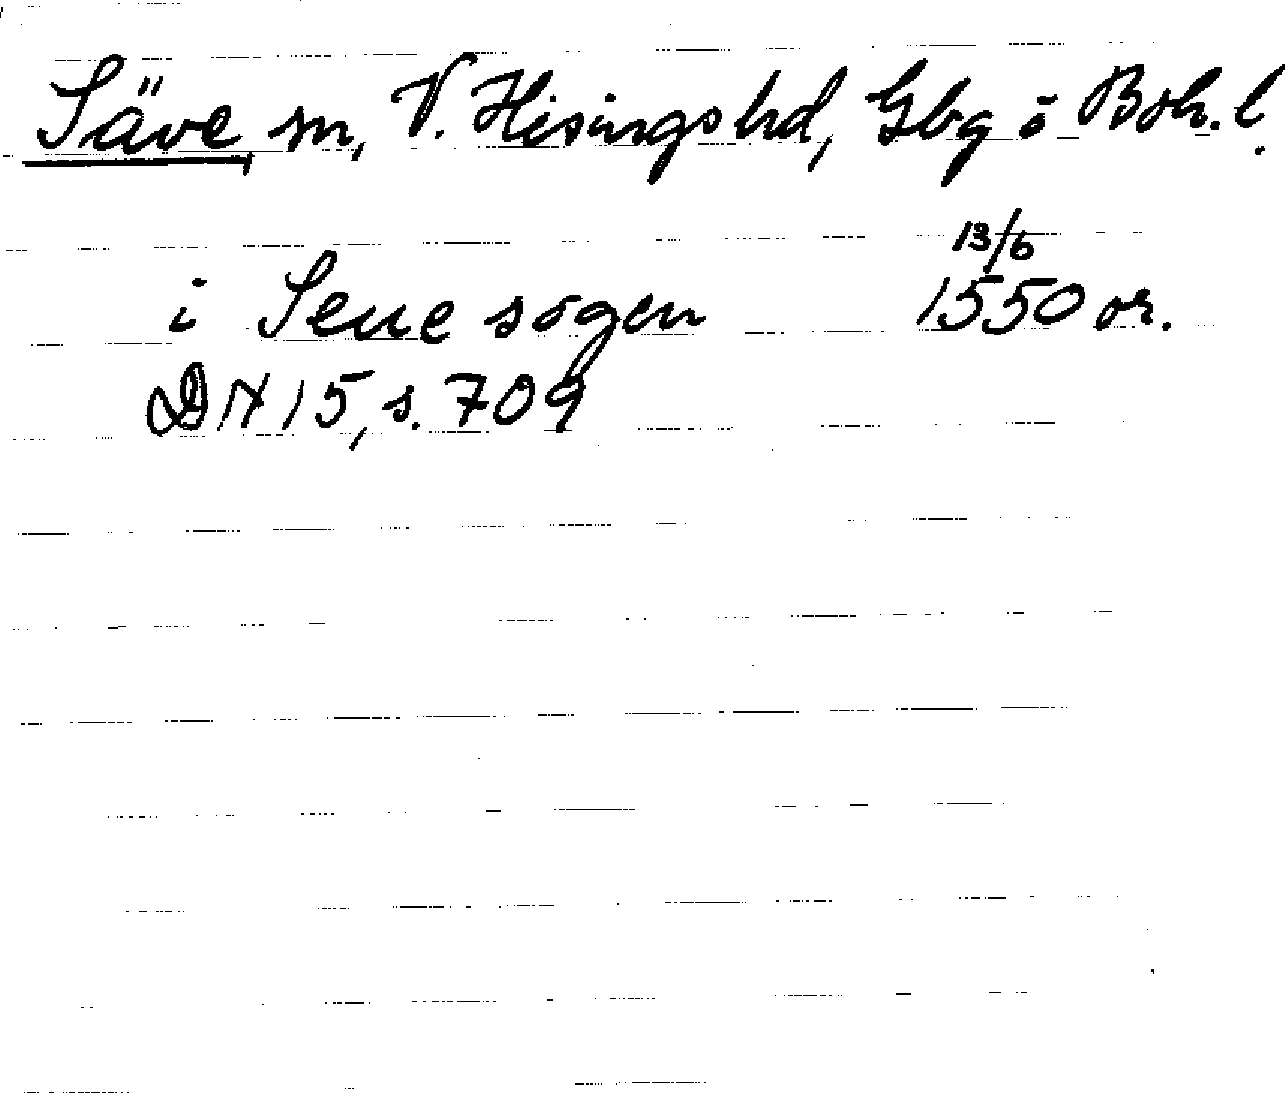 Säve, sn, V. Hisings hd, Gbg o Boh. l.
13/6
i Seue sogen 1550 or.
DN 15, s. 709